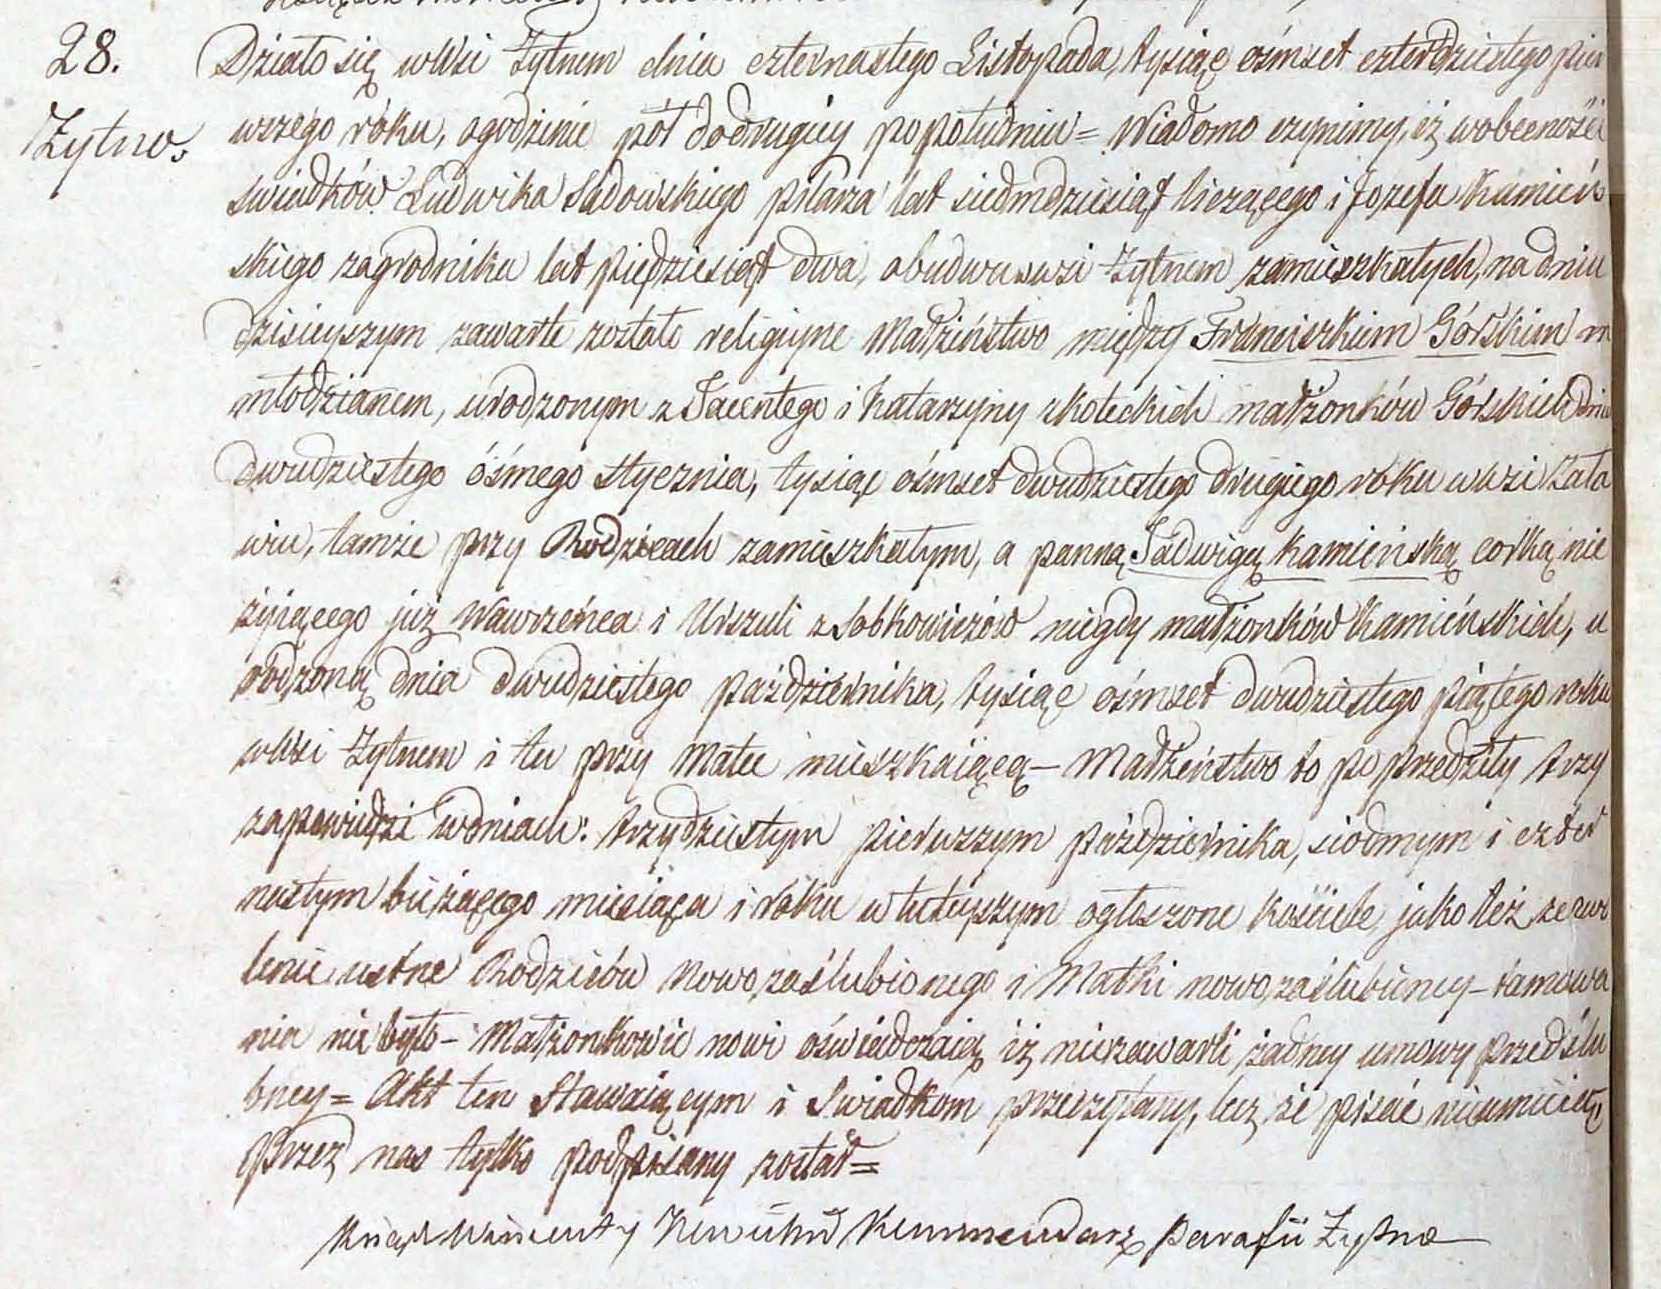 28.
Żytno.
Działo się w Wsi Żytnem dnia czternastego Listopada, tysiąc ośmset czterdziestego pier
wszego roku, o godzinie pół do drugiey po południu = Wiadomo czynimy, iż w obecności
świadków Ludwika Sadowskiego pilarza lat siedmdziesiąt liczącego i Jozefa Kamień
skiego zagrodnika lat pięдziesiąt dwa, obudwu w wsi Żytnem zamieszkałych, na dniu
dzisieyszym zawarte zostało religiyne Małżeństwo między Franciszkiem Górskim m
młodzianem, urodzonym z Jacentego i Katarzyny z Koteckich małżonków Górskich dnia
dwudziestego ósmego stycznia, tysiąc ośmset dwudziestego drugiego roku w wsi
wiu, tamże przy Rodzicach zamieszkałym, a panną Jadwigą Kamieńską corką nie
żyiącego już Wawrzeńca i Urszuli z Sobkowiczów niegdy małżonków Kamieńskich, u
rodzoną dnia dwudziestego Października, tysiąc ośmset dwudziestego piątego roku
w Wsi Żytnem i tu przy Matce mieszkaiącą – Małżeństwo to poprzedziły trzy
zapowiedzi w dniach: trzydziestym pierwszym października, siodmym i czter
nastym bieżącego miesiąca i roku w tuteyszym ogłoszone kościele, jako też zezwo
lenie ustne Rodziców Nowozaślubionego i Matki nowozaślubioney – tamowa
nia nie było – Małżonkowie nowi oświadczaią iż niezawarli żadney umowy przedślu
bney = Akt ten Stawaiącym i Świadkom przeczytany, lecz że pisać nieumieią
Przez nas tylko podpisany został =
Ksiądz Wincenty Kommendarz Parafii Żytno